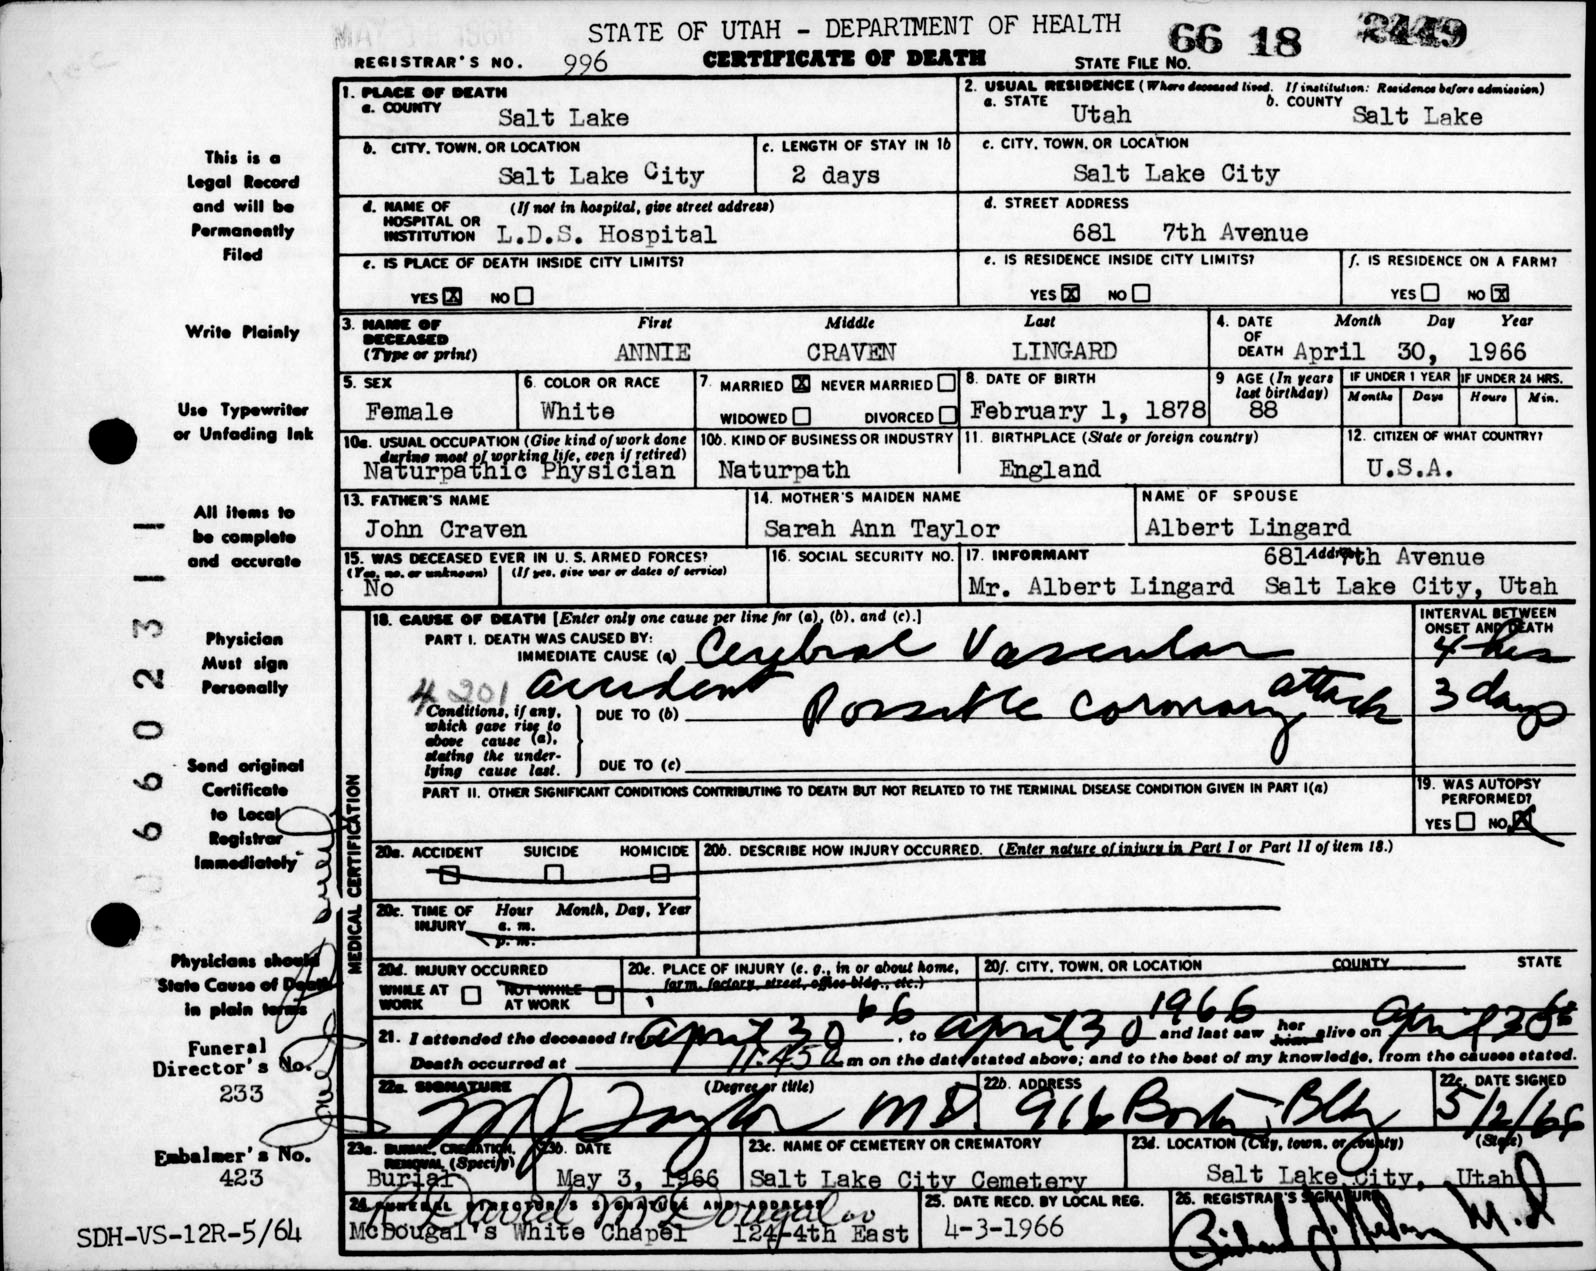 STATE OF UTAH - DEPARTMENT OF HEALTH
66 18 2449
REGISTRAR'S NO. 996 CERTIFICATE OF DEATH STATE FILE NO.
1. PLACE OF DEATH
a. COUNTY
Salt Lake
2. USUAL RESIDENCE (Where deceased lived. If institution: Residence before admission)
a. STATE b. COUNTY
Utah Salt Lake
b. CITY, TOWN, OR LOCATION
Salt Lake City
c. LENGTH OF STAY IN 1b
2 days
c. CITY, TOWN, OR LOCATION
Salt Lake City
d. NAME OF HOSPITAL OR INSTITUTION (If not in hospital, give street address)
L.D.S. Hospital
d. STREET ADDRESS
681 7th Avenue
e. IS PLACE OF DEATH INSIDE CITY LIMITS?
YES X NO
e. IS RESIDENCE INSIDE CITY LIMITS?
YES X NO
f. IS RESIDENCE ON A FARM?
YES NO X
3. NAME OF DECEASED (Type or print)
First Middle Last
ANNIE CRAVEN LINGARD
4. DATE OF DEATH Month Day Year
April 30, 1966
5. SEX
Female
6. COLOR OR RACE
White
7. MARRIED X NEVER MARRIED
WIDOWED DIVORCED
8. DATE OF BIRTH
February 1, 1878
9 AGE (In years last birthday)
88
IF UNDER 1 YEAR IF UNDER 24 HRS.
Months Days Hours Min.
10a. USUAL OCCUPATION (Give kind of work done during most of working life, even if retired)
Naturpathic Physician
10b. KIND OF BUSINESS OR INDUSTRY
Naturpath
11. BIRTHPLACE (State or foreign country)
England
12. CITIZEN OF WHAT COUNTRY?
U.S.A.
13. FATHER'S NAME
John Craven
14. MOTHER'S MAIDEN NAME
Sarah Ann Taylor
NAME OF SPOUSE
Albert Lingard
15. WAS DECEASED EVER IN U.S. ARMED FORCES?
(Yes, no, or unknown) (If yes, give war or dates of service)
No
16. SOCIAL SECURITY NO.
17. INFORMANT Address
681 7th Avenue
Mr. Albert Lingard Salt Lake City, Utah
MEDICAL CERTIFICATION
18. CAUSE OF DEATH [Enter only one cause per line for (a), (b), and (c).]
INTERVAL BETWEEN ONSET AND DEATH
PART I. DEATH WAS CAUSED BY:
IMMEDIATE CAUSE (a) Cerebral Vascular 4 hrs
4201 accident
Conditions, if any, which gave rise to above cause (a), stating the underlying cause last.
DUE TO (b) Possible coronary attack 3 days
DUE TO (c)
PART II. OTHER SIGNIFICANT CONDITIONS CONTRIBUTING TO DEATH BUT NOT RELATED TO THE TERMINAL DISEASE CONDITION GIVEN IN PART I(a)
19. WAS AUTOPSY PERFORMED?
YES NO X
20a. ACCIDENT SUICIDE HOMICIDE
20b. DESCRIBE HOW INJURY OCCURRED. (Enter nature of injury in Part I or Part II of item 18.)
20c. TIME OF INJURY Hour Month, Day, Year
a. m.
p. m.
20d. INJURY OCCURRED
WHILE AT WORK NOT WHILE AT WORK
20e. PLACE OF INJURY (e. g., in or about home, farm, factory, street, office bldg., etc.)
20f. CITY, TOWN, OR LOCATION COUNTY STATE
21. I attended the deceased from April 30 66, to April 30 1966 and last saw her him alive on April 30 66
Death occurred at 11:45 a m on the date stated above; and to the best of my knowledge, from the causes stated.
22a. SIGNATURE (Degree or title)
Taylor MD.
22b. ADDRESS
916 Boston Bldg
22c. DATE SIGNED
5/2/66
23a. BURIAL, CREMATION, REMOVAL (Specify)
Burial
23b. DATE
May 3, 1966
23c. NAME OF CEMETERY OR CREMATORY
Salt Lake City Cemetery
23d. LOCATION (City, town, or county) (State)
Salt Lake City, Utah
24. FUNERAL DIRECTOR'S SIGNATURE AND ADDRESS
David McDougal
McDougal's White Chapel 124-4th East
25. DATE RECD. BY LOCAL REG.
4-3-1966
26. REGISTRAR'S SIGNATURE
M.D
This is a
Legal Record
and will be
Permanently
Filed
Write Plainly
Use Typewriter
or Unfading Ink
All items to
be complete
and accurate
Physician
Must sign
Personally
Send original
Certificate
to Local
Registrar
Immediately
Physicians should
State Cause of Death
in plain terms
Funeral
Director's No.
233
Embalmer's No.
423
SDH-VS-12R-5/64